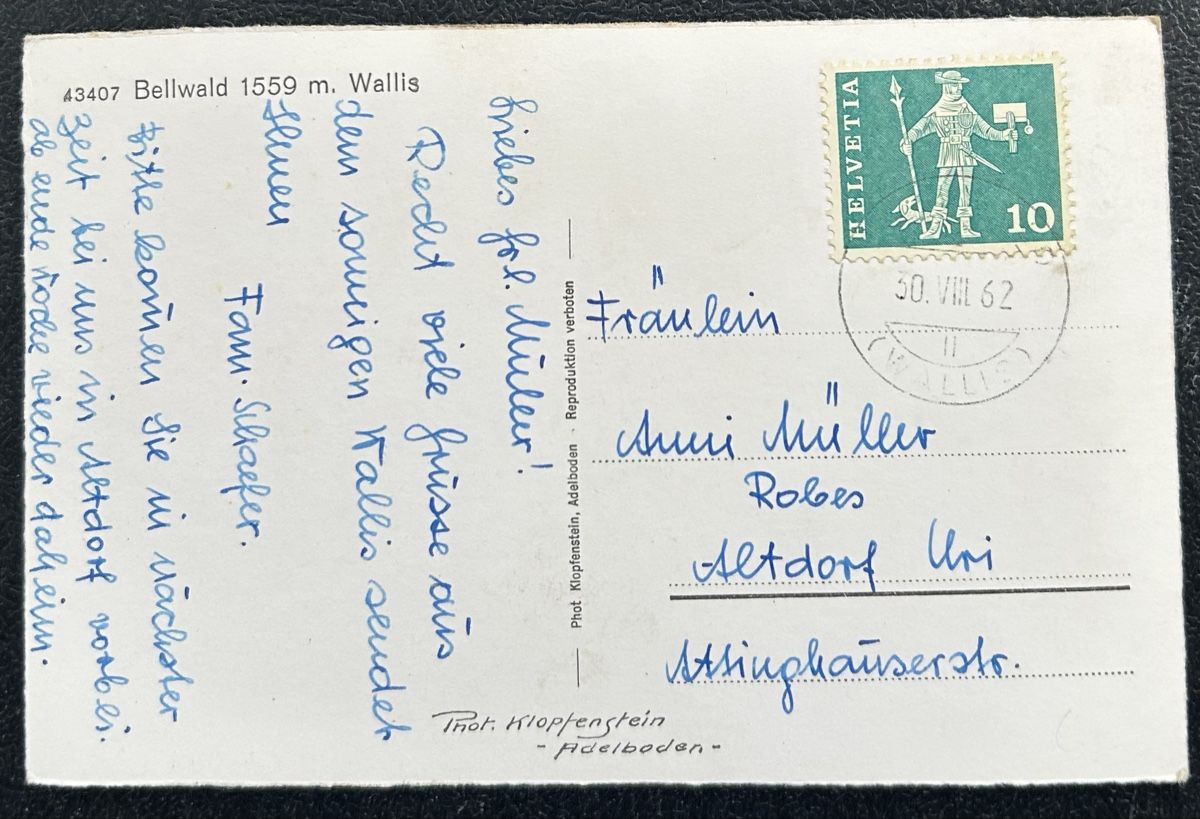 43407 Bellwald 1559 m. Wallis
Liebes Frl. Müller!
Recht viele Grüsse aus
dem sonnigen Wallis sendet
Ihnen
Fam. Schaefer.
Bitte kom̄en Sie in nächster
Zeit bei uns in Altdorf vorbei.
ab ende Woche wieder daheim.
Phot. Klopfenstein, Adelboden - Reproduktion verboten
HELVETIA
10
30. VIII. 62
11
(WALLIS)
Fräulein
Anni Müller
Robes
Altdorf Uri
Attinghauserstr.
Phot. Klopfenstein
- Adelboden -